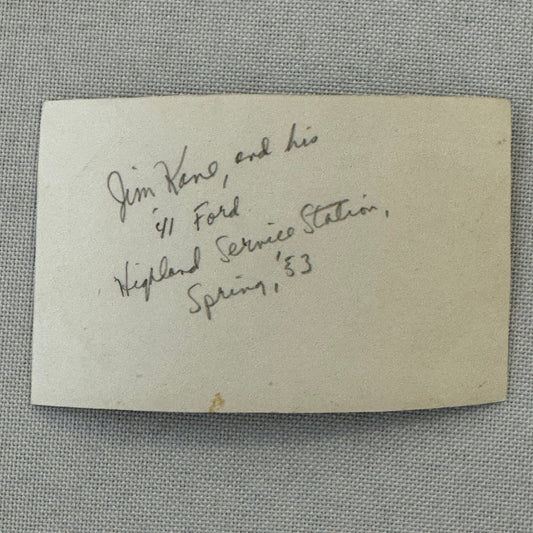 Jim Kane, and his
'41 Ford
Highland Service Station,
Spring, '53